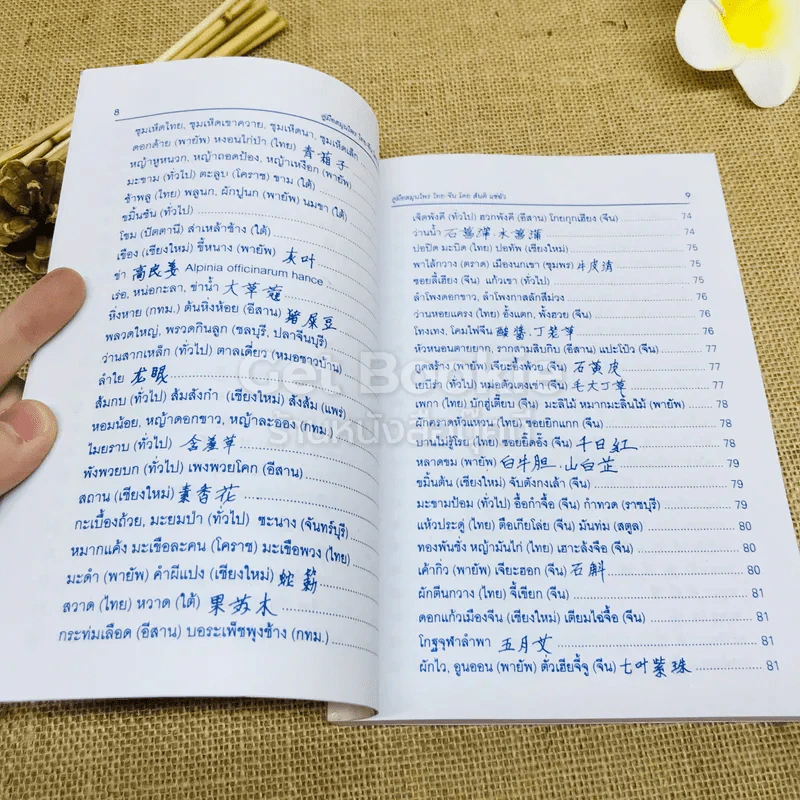 8
คู่มือสมุนไพร ไทย-จีน
ชุมเห็ดไทย, ชุมเห็ดเขาควาย, ชุมเห็ดนา, ชุมเห็ดเล็ก
ดอกด้าย (พายัพ) หงอนไก่ป่า (ไทย) 青葙子
หญ้าหูหนวก, หญ้าถอดปล้อง, หญ้าเหงือก (พายัพ)
มะขาม (ทั่วไป) ตะลูบ (โคราช) ขาม (ใต้)
ช้าพลู (ไทย) พลูนก, ผักปูนก (พายัพ) นมขา (ใต้)
ขมิ้นชัน (ทั่วไป)
โชม (ปัตตานี) สำเหล้าช้าง (ใต้)
เชียง (เชียงใหม่) ชี้หนาง (พายัพ) 灰叶
ข่า 高良姜 Alpinia officinarum hance
เร่อ, หน่อกะลา, ข่าน้ำ 大草蔻
หิ่งหาย (กทม.) ต้นหิ่งห้อย (อีสาน) 猪屎豆
พลวดใหญ่, พรวดกินลูก (ชลบุรี, ปลาจีนบุรี)
ว่านสากเหล็ก (ทั่วไป) ตาลเดี่ยว (หมอชาวบ้าน)
ลำไย 龙眼
ส้มกบ (ทั่วไป) ส้มสังกำ (เชียงใหม่) สังส้ม (แพร่)
หอมน้อย, หญ้าดอกขาว, หญ้าละออง (กทม.)
ไมยราบ (ทั่วไป) 含羞草
พังพวยบก (ทั่วไป) เพงพวยโคก (อีสาน)
สถาน (เชียงใหม่) 素香花
กะเบื้องถ้วย, มะยมป่า (ทั่วไป) ชะนาง (จันทร์บุรี)
หมากแค้ง มะเขือละคน (โคราช) มะเขือพวง (ไทย)
มะดำ (พายัพ) คำผีแปง (เชียงใหม่) 蛇
สวาด (ไทย) หวาด (ใต้) 果苏木
กระท่มเลือด (อีสาน) บอระเพ็ชพุงช้าง (กทม.)
คู่มือสมุนไพร ไทย-จีน โดย สันติ แซ่ยั่ว
9
เจ็ดพังคี (ทั่วไป) ฮวกพังคี (อีสาน) โกยกุกเฮียง (จีน) 74
ว่านน้ำ 石菖蒲.水菖蒲 74
ปอปิด มะบิด (ไทย) ปอทัพ (เชียงใหม่) 75
พาไส้กวาง (ตราด) เมืองนกเขา (ชุมพร) 牛皮消 75
ซอยลี้เฮียง (จีน) แก้วเขา (ทั่วไป) 75
ลำโพงดอกขาว, ลำโพงกาสลักสีม่วง 76
ว่านหอยแครง (ไทย) อั้งแตก, พั้งฮวย (จีน) 76
โทงเทง, โคมไฟจีน 酸醬.丁老草 76
หัวหนอนตายยาก, รากสามสิบกีบ (อีสาน) แปะโป้ว (จีน) 77
กูดสร้าง (พายัพ) เจียะอึ้งพ้วย (จีน) 石黄皮 77
เยบีร่า (ทั่วไป) หม่อตัวเตงเช่า (จีน) 毛大丁草 77
เพกา (ไทย) บักฮู่เตี๊ยบ (จีน) มะลิไม้ หมากมะลิ้นไม้ (พายัพ) 78
ผักคราดทั่วแหวน (ไทย) ซอยยิกแกก (จีน) 78
บานไม่รู้โรย (ไทย) ซอยยิ๊ดอั้ง (จีน) 千日红 78
หลาดขม (พายัพ) 白牛胆.山白芷 79
ขมิ้นต้น (เชียงใหม่) จับตังกงเล้า (จีน) 79
มะขามป้อม (ทั่วไป) อื้อกำจื้อ (จีน) กำทวด (ราชบุรี) 79
แห้วประดู่ (ไทย) ตือเกียโล่ย (จีน) มันท่ม (สตูล) 80
ทองพันชั่ง หญ้ามันไก่ (ไทย) เฮาะลั้งจือ (จีน) 80
เค้ากิ่ว (พายัพ) เจียะฮอก (จีน) 石斛 80
ผักตีนกวาง (ไทย) จี้เชียก (จีน) 81
ดอกแก้วเมืองจีน (เชียงใหม่) เตียมไฉ่จื้อ (จีน) 81
โกฐจุฬาลำพา 五月艾 81
ผักไว, อูนออน (พายัพ) ตั่วเฮียจี้จู (จีน) 七叶紫珠 81
Get Books